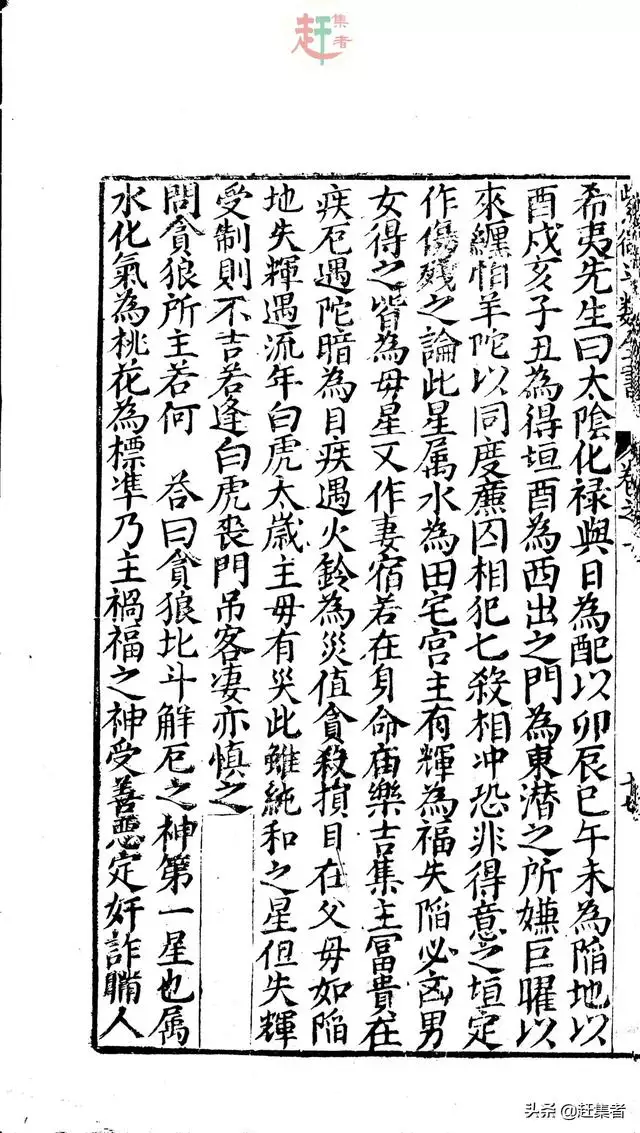 赶集者
希夷先生曰太陰化禄與日為配以卯辰巳午未為陷地以
酉戍亥子丑為得垣酉為西出之門為東潜之所嫌巨曜以
來纒怕羊陀以同度㢘囚相犯七殺相冲恐非得意之垣定
作傷殘之論此星属水為田宅宫主有輝為福失陷必凶男
女得之皆為毋星又作妻宿若在身命庙樂吉集主冨貴在
疾厄遇陀暗為目疾遇火鈴為災值貪殺損目在父毋如陷
地失輝遇流年白虎太歲主毋有災此雖純和之星但失輝
受制則不吉若逢白虎喪門吊客凄亦慎之
問貪狼所主若何 荅曰貪狼北斗解厄之神第一星也属
水化氣為桃花為標凖乃主禍福之神受善惡定奸詐瞞人
頭条 @赶集者